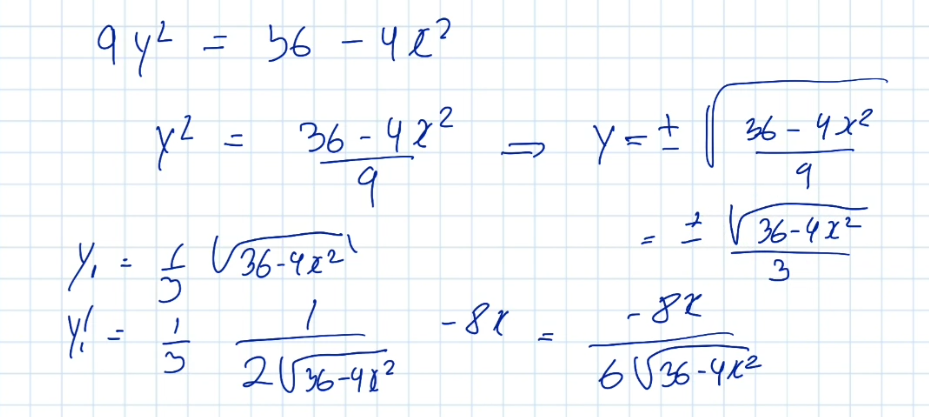 9y² = 36 - 4x²
y² = (36 - 4x²)/9 ⇒ y = ± √((36 - 4x²)/9)
= ± √(36-4x²)/3
y₁ = 1/3 √(36-4x²)
y₁' = 1/3 1/(2√(36-4x²)) -8x = -8x/(6√(36-4x²))